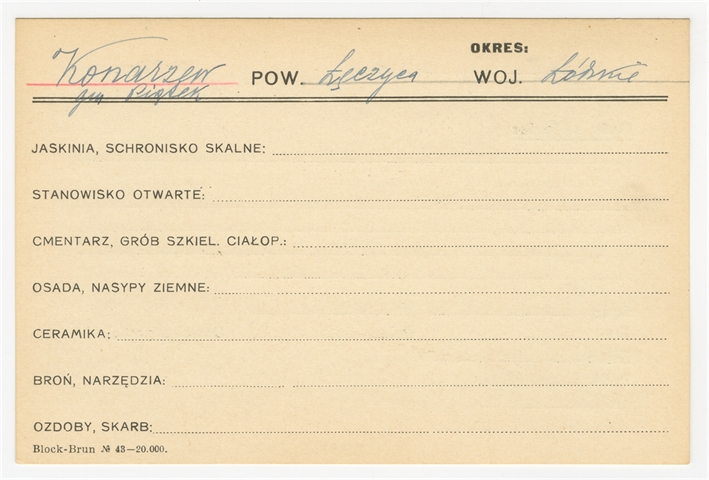 OKRES:
Konarzew POW. Łęczyca WOJ. Łódzkie
gm Piątek
JASKINIA, SCHRONISKO SKALNE:
STANOWISKO OTWARTE:
CMENTARZ, GRÓB SZKIEL. CIAŁOP.:
OSADA, NASYPY ZIEMNE:
CERAMIKA:
BROŃ, NARZĘDZIA:
OZDOBY, SKARB:
Block-Brun № 43—20.000.